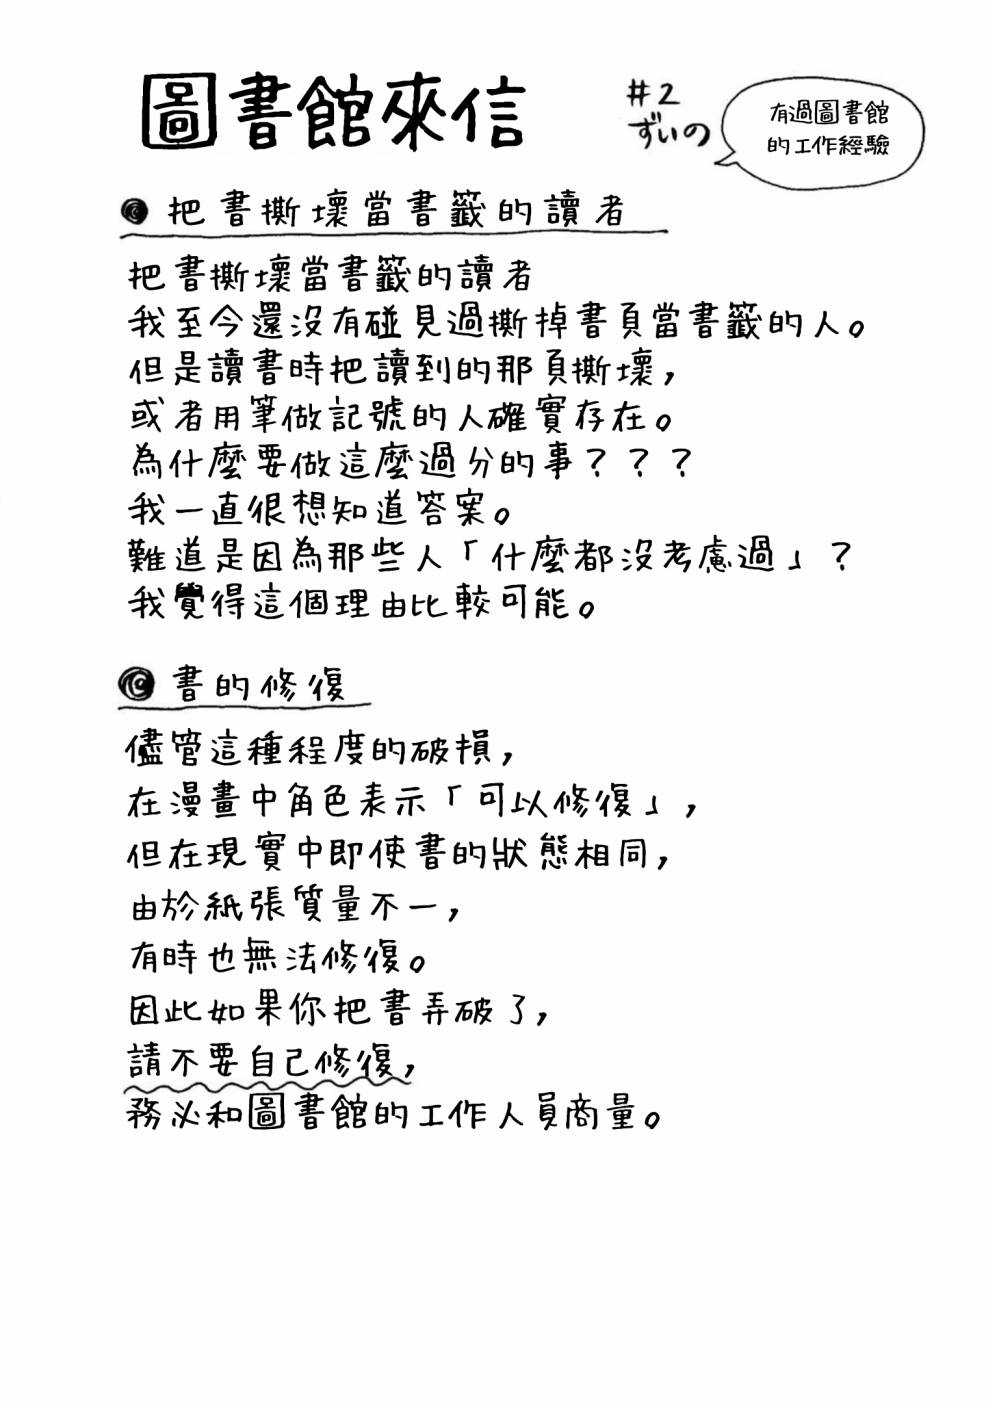 圖書館來信
#2
ずいの
有過圖書館
的工作經驗
把書撕壞當書籤的讀者
把書撕壞當書籤的讀者
我至今還沒有碰見過撕掉書頁當書籤的人。
但是讀書時把讀到的那頁撕壞，
或者用筆做記號的人確實存在。
為什麼要做這麼過分的事？？？
我一直很想知道答案。
難道是因為那些人「什麼都沒考慮過」？
我覺得這個理由比較可能。
書的修復
儘管這種程度的破損，
在漫畫中角色表示「可以修復」，
但在現實中即使書的狀態相同，
由於紙張質量不一，
有時也無法修復。
因此如果你把書弄破了，
請不要自己修復，
務必和圖書館的工作人員商量。